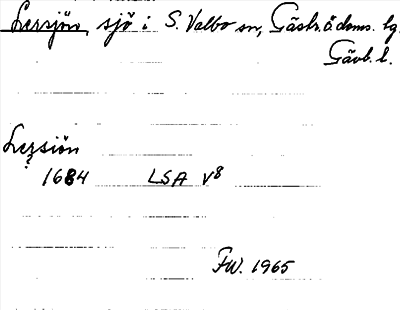 Lersjön, sjö i S. Valbo sn, Gästr. ö. doms. hg.
Gävb. l.
Lersiön
1684 LSA V8
FW. 1965